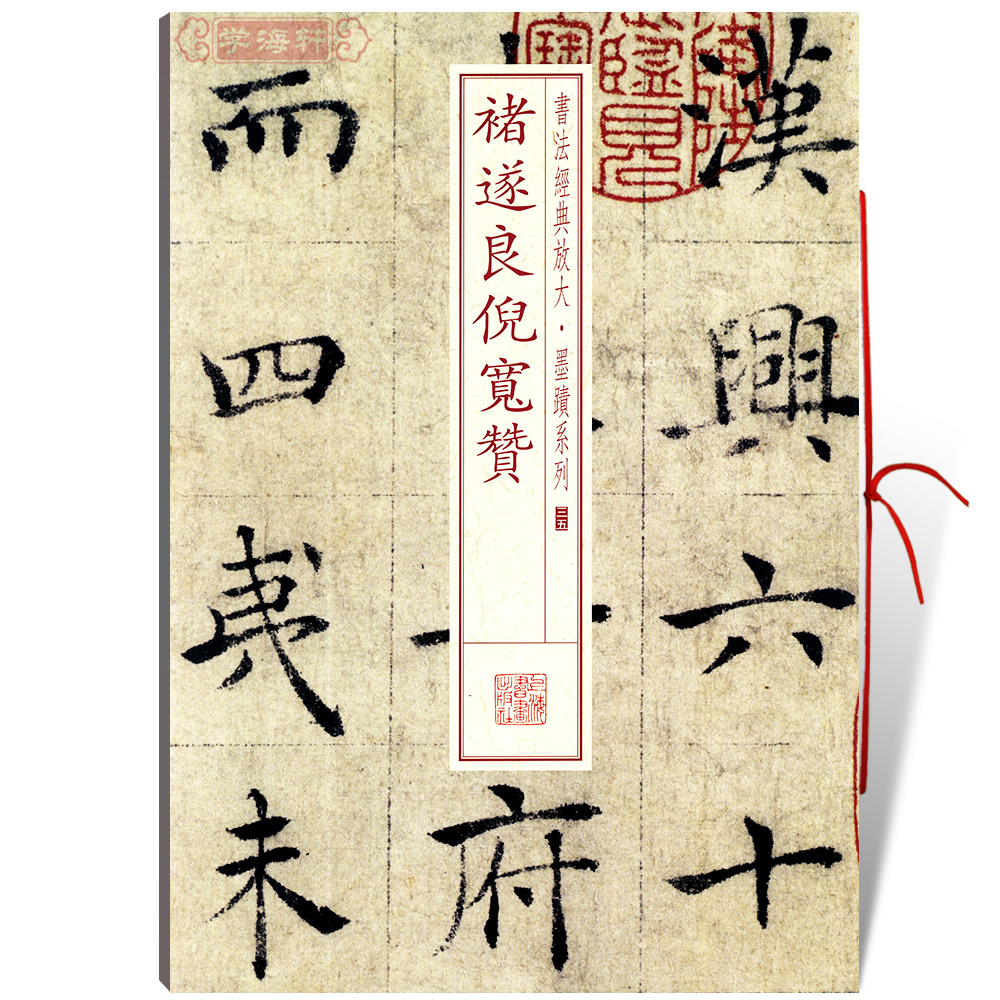 学海轩
書法經典放大·墨蹟系列 三五
褚遂良倪寬贊
上海書畫出版社
漢興六十
府
而四夷未